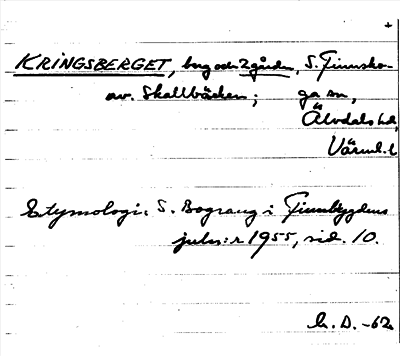 KRINGSBERGET, berg och 2 gårdar, S. Finnsko-
av. Skallbäcken; ga sn,
Älvdals hd,
Värml. l.
Etymologi: S. Bograng i Finnbygdens
julnr 1955, sid. 10.
L. D. -62